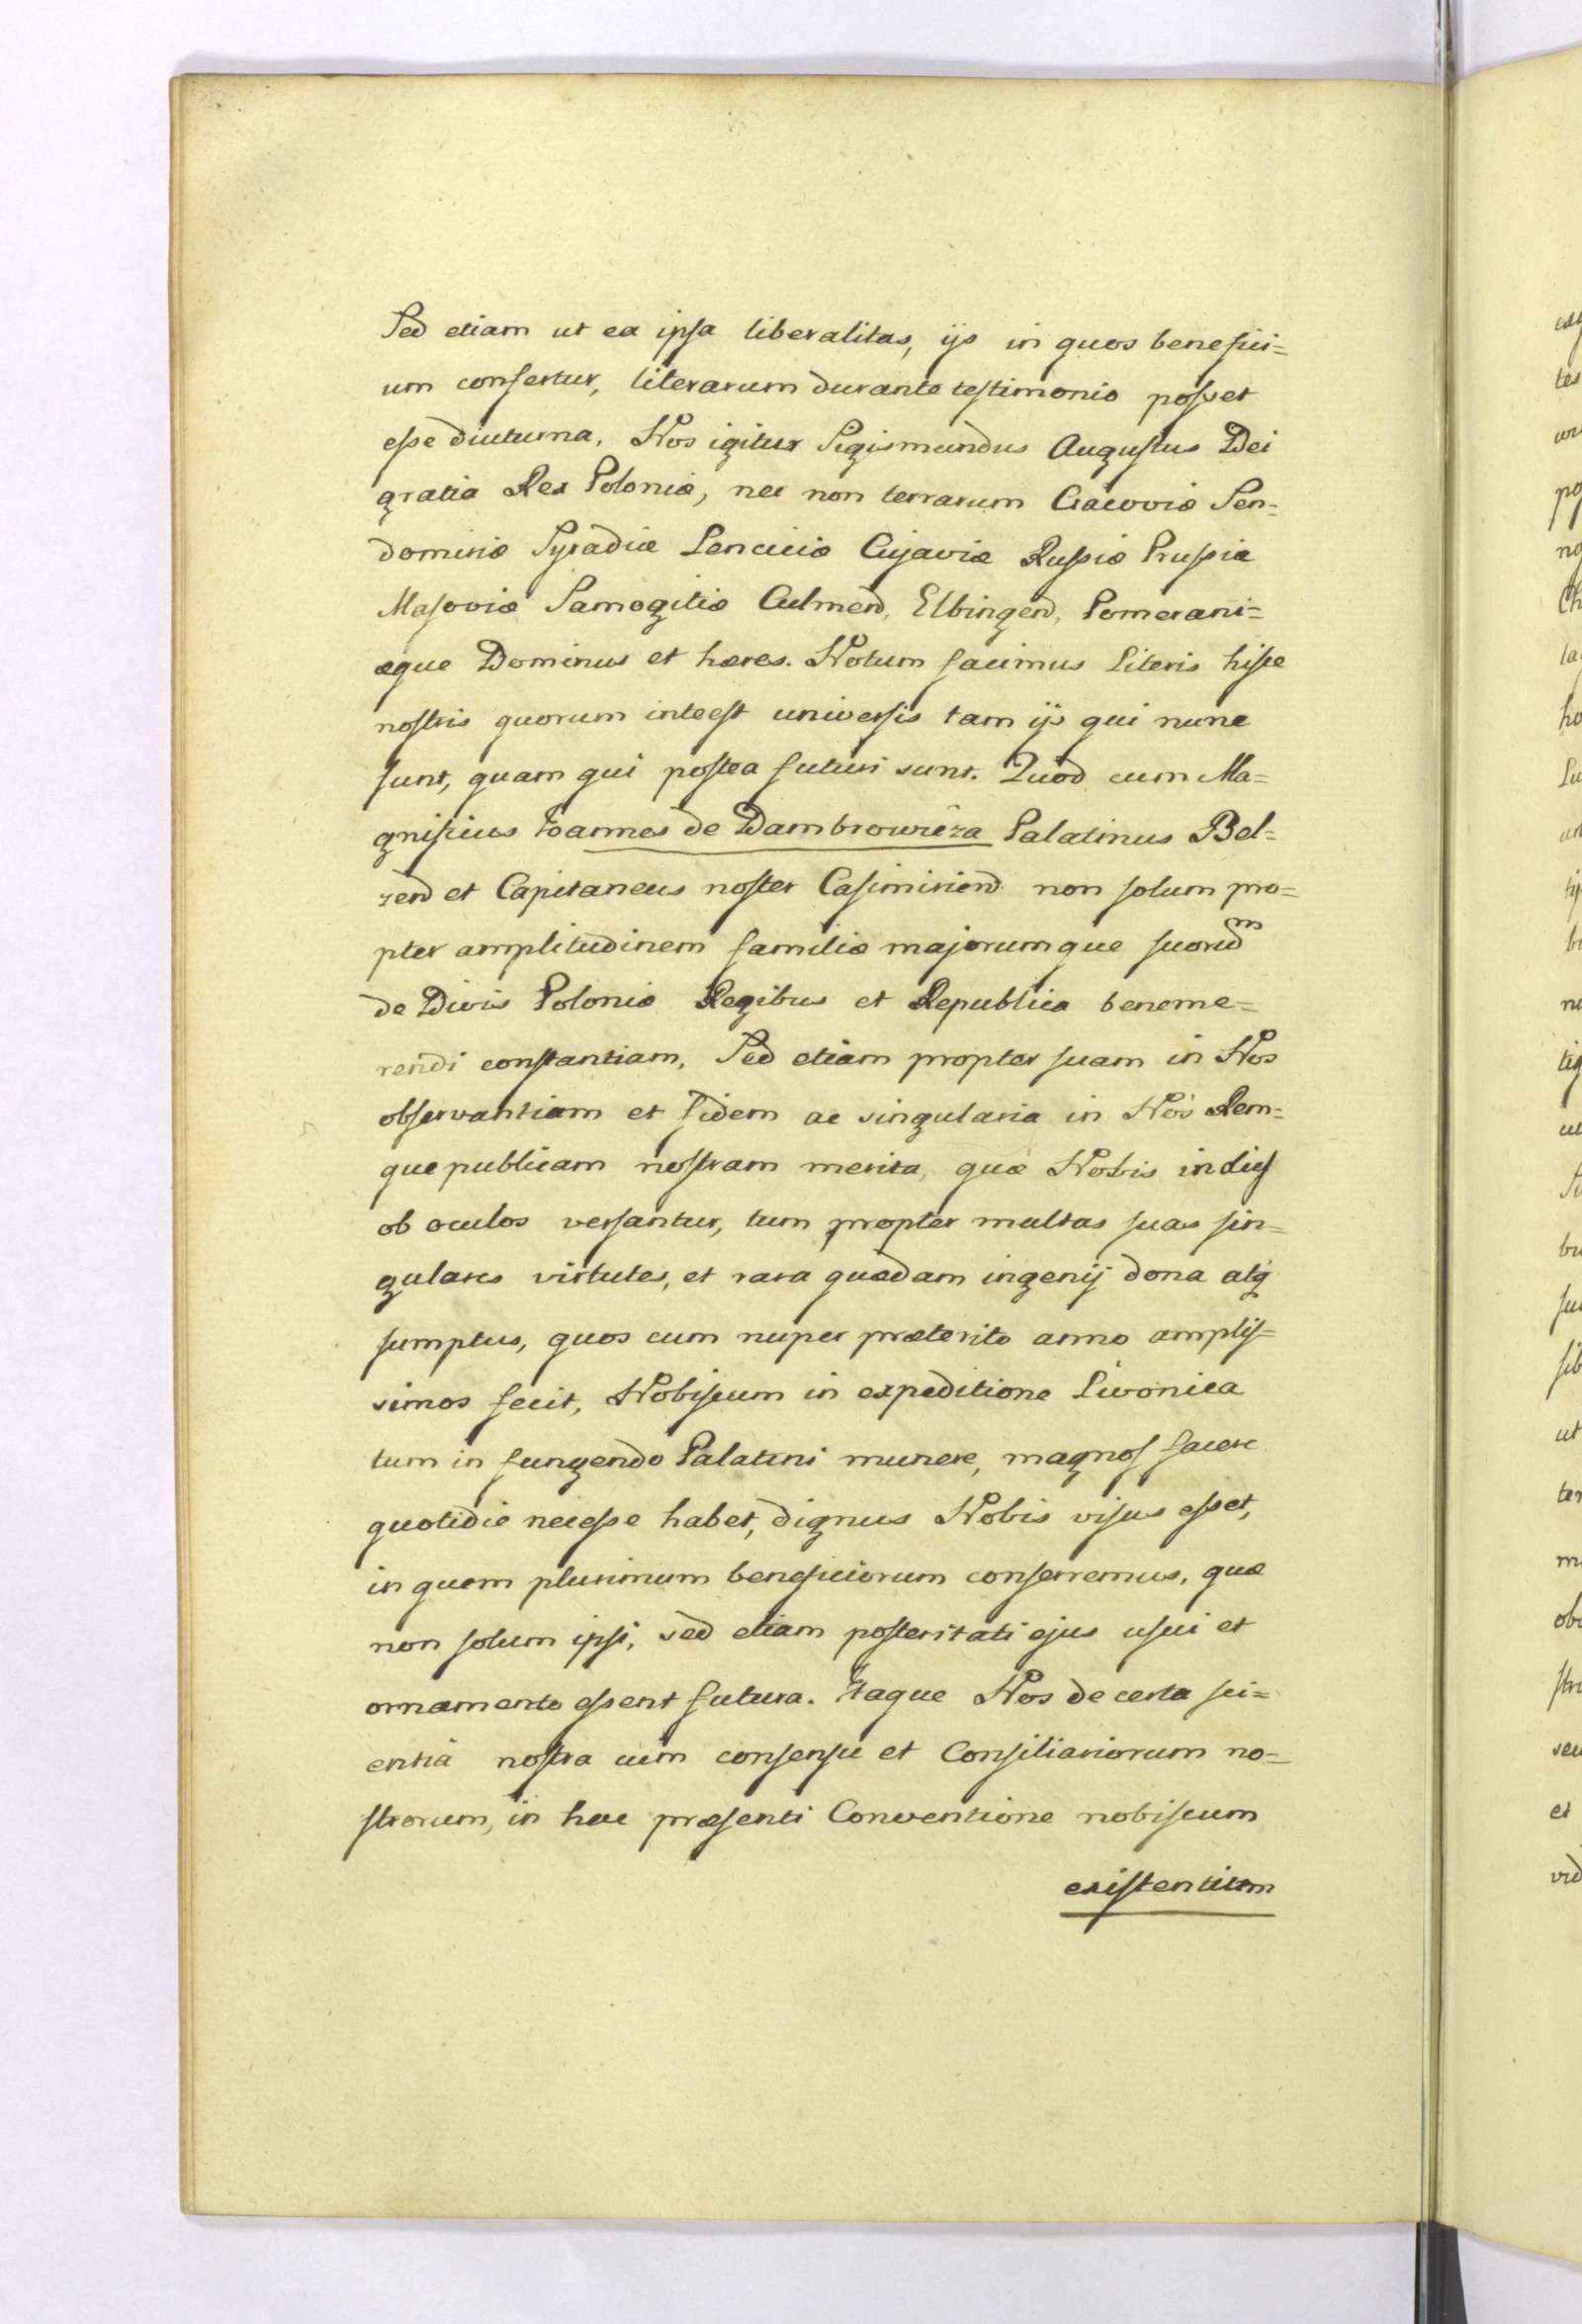 Sed etiam ut ea ipsa liberalitas, ijs in quos benefici=
um confertur, literarum durante testimonio posset
esse diuturna. Nos igitur Sigismundus Augustus Dei
gratia Rex Poloniæ, nec non terrarum Cracoviæ Sen=
domiriæ Syradiæ Lenciciæ Cujaviæ Russiæ Prussiæ
Masoviæ Samogitiæ Culmen, Elbingen, Pomerani=
æque Dominus et hæres. Notum facimus Literis hisce
nostris quorum inteest universis tam ijs qui nunc
sunt, quam qui postea futuri sunt. Quod cum Ma=
gnificus Joannes de Dambrowiêza Palatinus Bel=
zen et Capitaneus noster Casimirien non solum pro=
pter amplitudinem familiæ majorumque suorum
de Divis Poloniæ Regibus et Republica beneme=
rendi constantiam, Sed etiam propter suam in Nos
observantiam et fidem ac singularia in Nos Rem=
que publicam nostram merita, quæ Nobis in dies
ob oculos versantur, tum propter multas suas sin=
gulares virtutes, et rara quædam ingenij dona atq
sumptus, quos cum nuper præterito anno amplis=
simos fecit, Nobiscum in expeditione Livonica
tum in fungendo Palatini munere, magnos facere
quotidie necesse habet, dignus Nobis visus esset,
in quem plurimum beneficiorum conferremus, quæ
non solum ipsi, sed etiam posteritati ejus usui et
ornamento essent futura. Itaque Nos de certa sci=
entiâ nostra cum consensu et Consiliariorum no=
strorum, in hac præsenti Conventione nobiscum
existentium